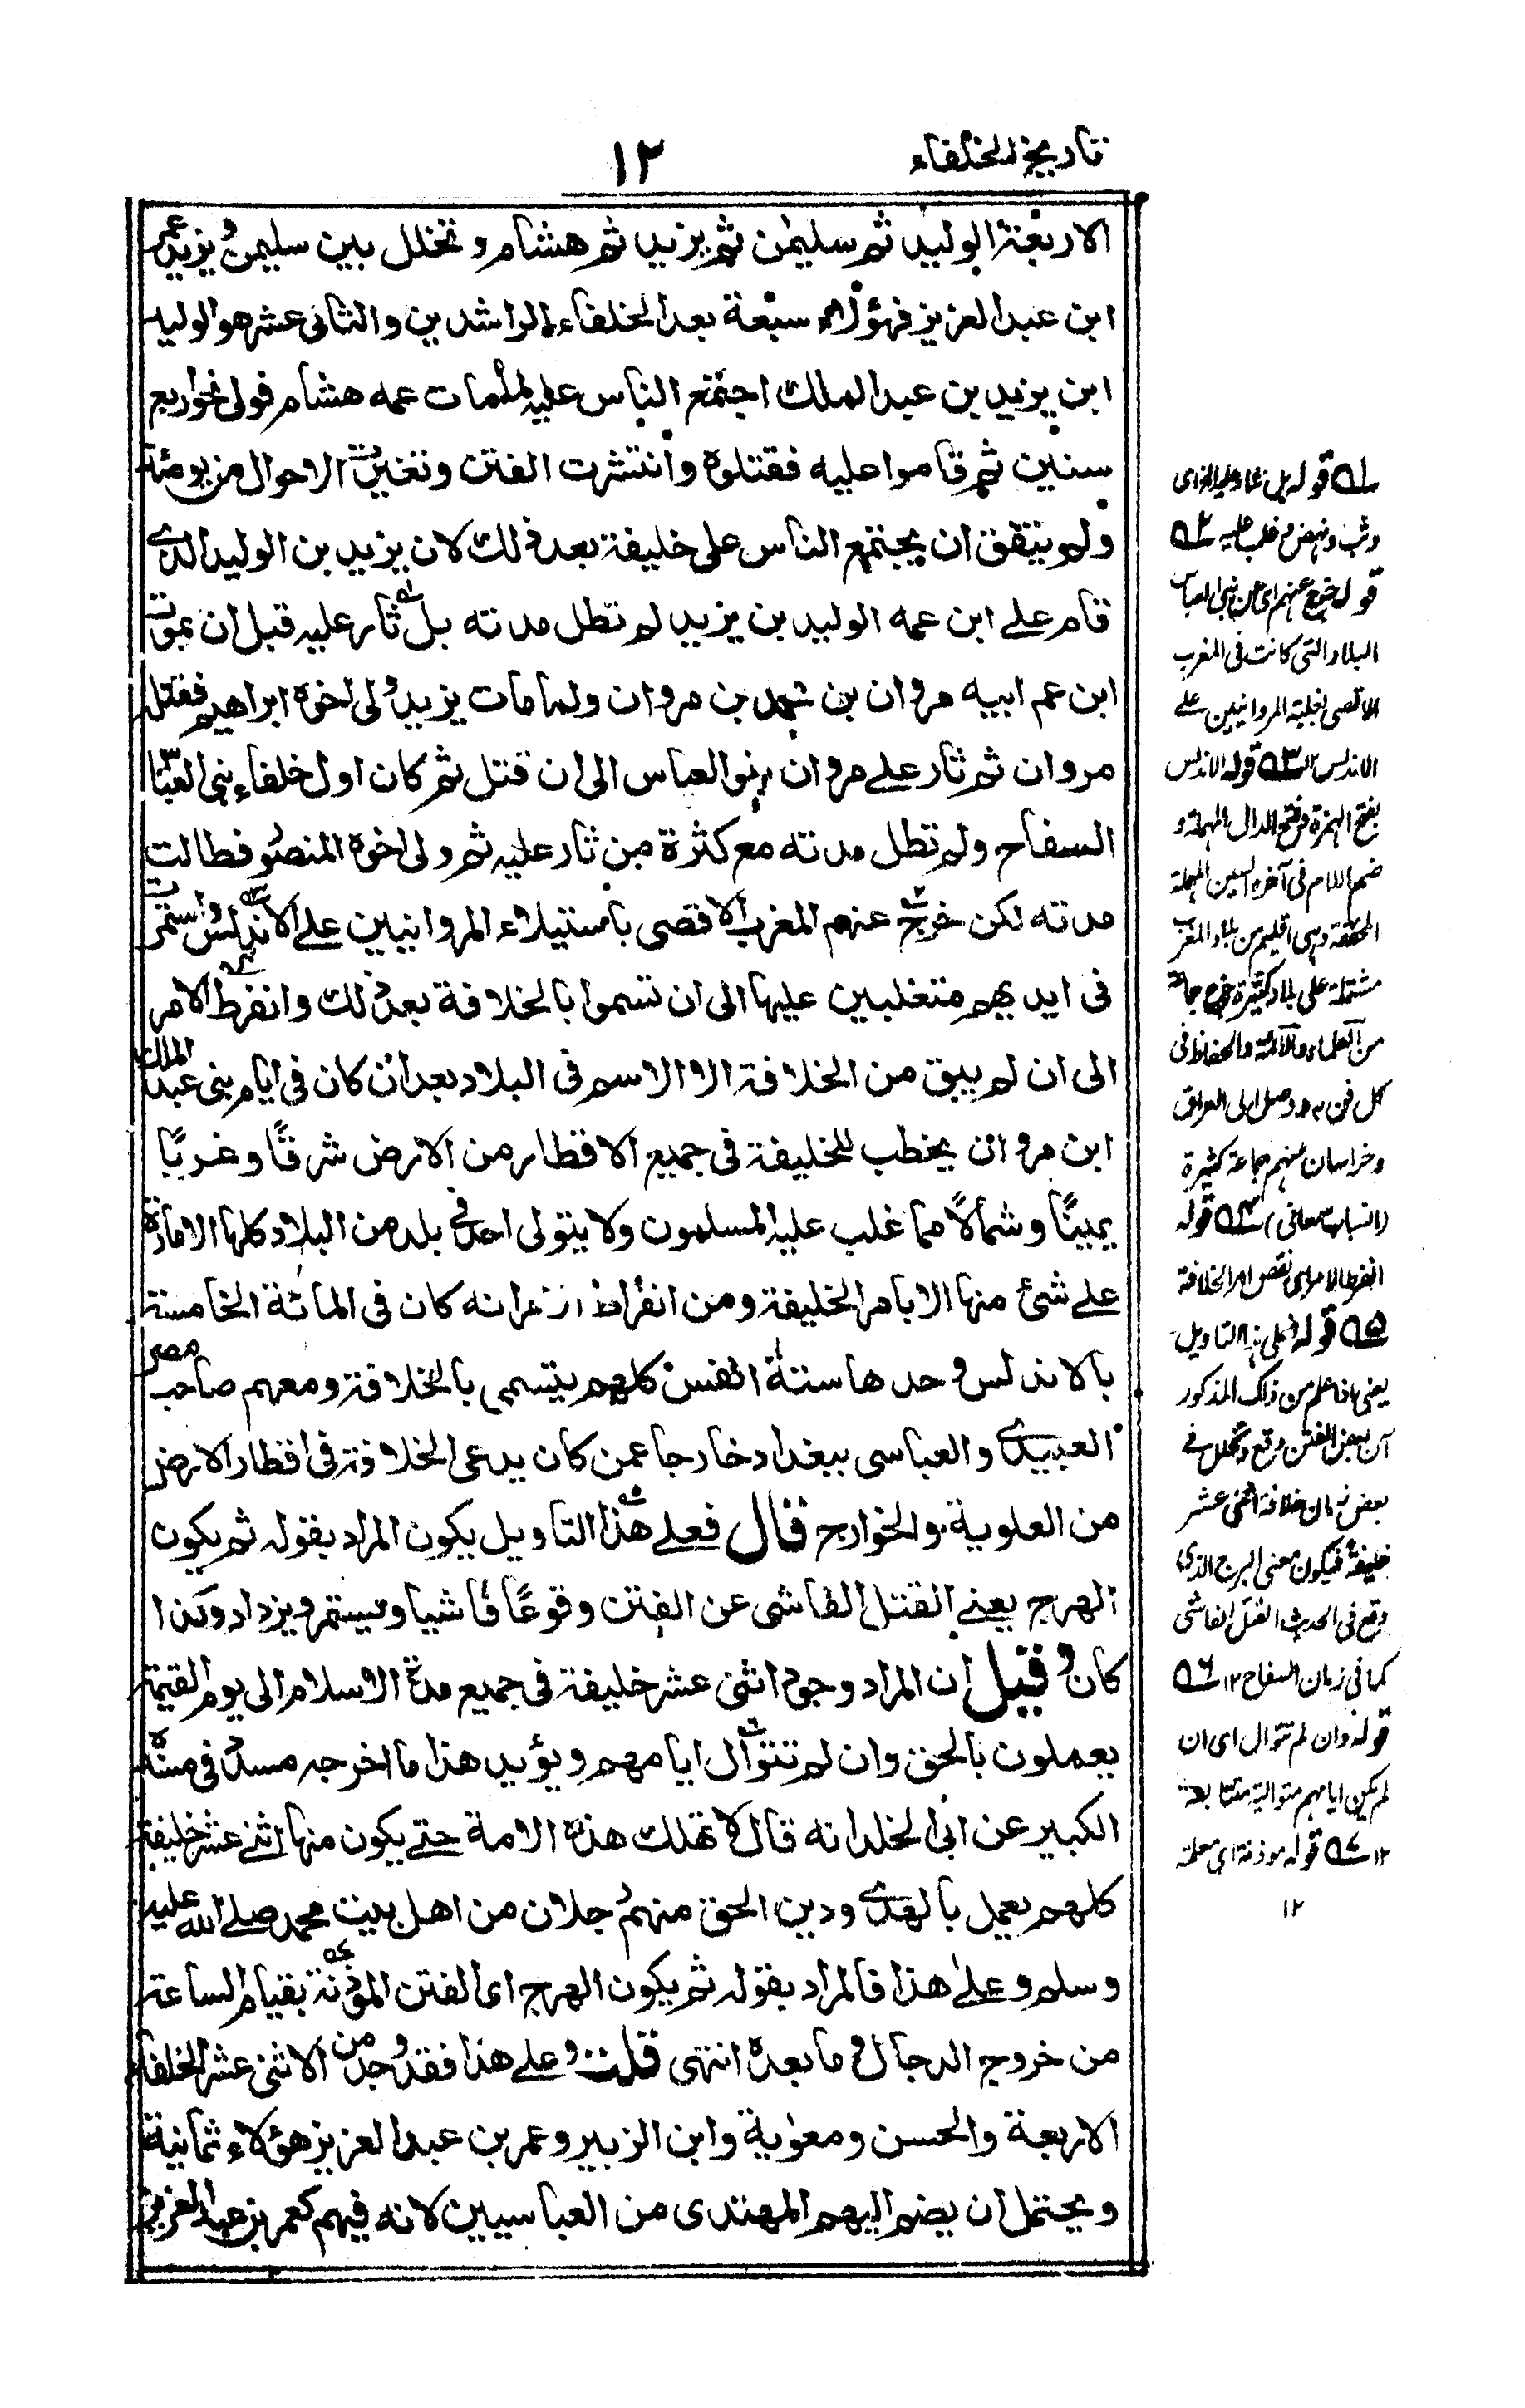 تاريخ الخلفاء
١٢
الاربعة الوليد ثم سليمٰن ثم يزيد ثم هشام و تخلل بين سليمٰن و يزيد عمر
ابن عبد العزيز فهؤلاء سبعة بعد الخلفاء الراشدين والثانى عشر هو الوليد
ابن يزيد بن عبد الملك اجتمع الناس عليه لما مات عمه هشام فولى نحو اربع
سنين ثم قاموا عليه فقتلوه وانتشرت الفتن وتغيرت الاحوال من يومئذ
ولم يتفق ان يجتمع الناس على خليفة بعد ذلك لان يزيد بن الوليد الذى
قام على ابن عمه الوليد بن يزيد لم تطل مدته بل ثار عليه قبل ان يموت
ابن عم ابيه مروان بن محمد بن مروان ولما مات يزيد ولى اخوه ابراهيم فقتله
مروان ثم ثار على مروان بنو العباس الى ان قتل ثم كان اول خلفاء بنى العباس
السفاح ولم تطل مدته مع كثرة من ثار عليه ثم ولى اخوه المنصور فطالت
مدته لكن خرج عنهم المغرب الاقصى باستيلاء المروانيين على الاندلس واستمرت
فى ايديهم متغلبين عليها الى ان تسموا بالخلافة بعد ذلك وانفرط الامر
الى ان لم يبق من الخلافة الا الاسم فى البلاد بعد ان كان فى ايام بنى عبد الملك
ابن مروان يخطب للخليفة فى جميع الاقطار من الارض شرقًا وغربًا
يمينًا وشمالًا مما غلب عليه المسلمون ولا يتولى احد فى بلد من البلاد كلها الامارة
على شئ منها الا بامر الخليفة ومن انفراط الامر انه كان فى المائة الخامسة
بالاندلس وحدها ستة انفس كلهم يتسمى بالخلافة ومعهم صاحب مصر
العبيدى والعباسى ببغداد خارجا عمن كان يدعى الخلافة فى اقطار الارض
من العلوية والخوارج قال فعلى هذا التاويل يكون المراد بقوله ثم يكون
الهرج يعنى القتل الناشى عن الفتن وقوعًا فاشيا ويستمر ويزداد وكذا
كان وقيل ان المراد وجود اثنى عشر خليفة فى جميع مدة الاسلام الى يوم القيمة
يعملون بالحق وان لم تتوال ايامهم ويؤيد هذا ما اخرجه مسدد فى مسنده
الكبير عن ابى الخلد انه قال لا تهلك هذه الامة حتى يكون منها اثنى عشر خليفة
كلهم يعمل بالهدى ودين الحق منهم رجلان من اهل بيت محمد صلى الله عليه
وسلم وعلى هذا فالمراد بقوله ثم يكون الهرج اى الفتن المؤذنة بقيام الساعة
من خروج الدجال وما بعده انتهى قلت وعلى هذا فقد وجد من الاثنى عشر الخلفاء
الاربعة والحسن ومعوية وابن الزبير وعمر بن عبد العزيز هؤلاء ثمانية
ويحتمل ان يضم اليهم المهتدى من العباسيين لانه فيهم كعمر بن عبد العزيز فى
١ قوله بل ثار عليه الخ اى
وثب ونهض و غلب عليه ٢
قوله خرج عنهم اى عن بنى العباس
البلاد التى كانت فى المغرب
الاقصى لغلبة المروانيين على
الاندلس ٣ قوله الاندلس
بفتح الهمزة وفتح الدال المهملة و
ضم اللام فى آخره السين المهملة
المخففة وهى اقليم من بلاد المغرب
مشتملة على بلاد كثيرة خرج جماعة
من العلماء والائمة والحفاظ فى
كل فن ووصل الى العراق
وخراسان منهم جماعة كثيرة
(انساب سمعانى) ٤ قوله
انفرط الامر اى نقص امر الخلافة
٥ قوله فعلى هذا التاويل
يعنى اذا علم من ذلك المذكور
ان بعض الفتن وقع وتخلل فى
بعض زمان خلافة اثنى عشر
خليفة فيكون معنى الهرج الذى
وقع فى الحديث القتل الفاشى
كما فى زمان السفاح ١٢ ٦
قوله وان لم تتوال اى ان
لم يكن ايامهم متوالية متتابعة
١٢ ٧ قوله موذنة اى معلمة
١٢